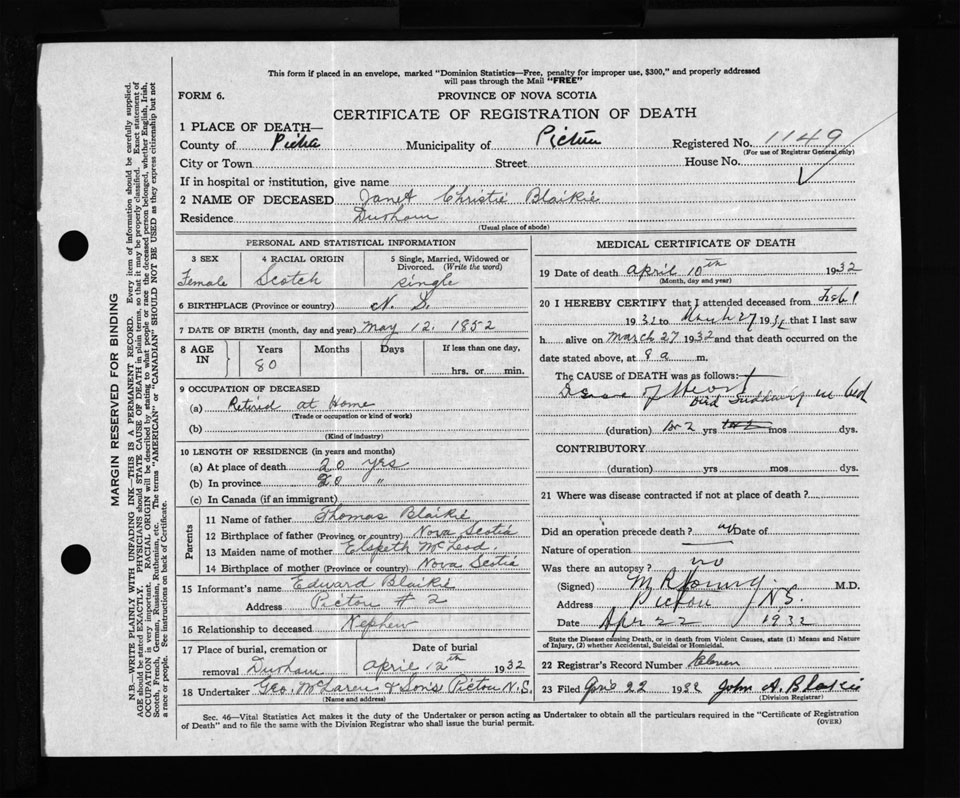 This form if placed in an envelope, marked "Dominion Statistics—Free, penalty for improper use, $300," and properly addressed
will pass through the Mail "FREE"
FORM 6.
PROVINCE OF NOVA SCOTIA
CERTIFICATE OF REGISTRATION OF DEATH
1 PLACE OF DEATH—
County of Pictou Municipality of Pictou Registered No. 1149
(For use of Registrar General only)
City or Town Street House No.
If in hospital or institution, give name
2 NAME OF DECEASED Janet Christie Blaikie
Residence Durham
(Usual place of abode)
PERSONAL AND STATISTICAL INFORMATION
3 SEX 4 RACIAL ORIGIN 5 Single, Married, Widowed or
Divorced. (Write the word)
Female Scotch Single
6 BIRTHPLACE (Province or country) N. S.
7 DATE OF BIRTH (month, day and year) May 12, 1852
8 AGE IN Years Months Days If less than one day,
80
hrs. or min.
9 OCCUPATION OF DECEASED
(a) Retired at Home
(Trade or occupation or kind of work)
(b)
(Kind of industry)
10 LENGTH OF RESIDENCE (in years and months)
(a) At place of death 20 yrs
(b) In province 20 "
(c) In Canada (if an immigrant)
Parents
11 Name of father Thomas Blaikie
12 Birthplace of father (Province or country) Nova Scotia
13 Maiden name of mother Elspeth McLeod.
14 Birthplace of mother (Province or country) Nova Scotia
15 Informant's name Edward Blaikie
Address Pictou # 2
16 Relationship to deceased Nephew
17 Place of burial, cremation or Date of burial
removal Durham April 12th 1932
18 Undertaker Geo. McLaren & Sons Pictou N.S.
(Name and address)
MEDICAL CERTIFICATE OF DEATH
19 Date of death April 10th 1932
(Month, day and year)
20 I HEREBY CERTIFY that I attended deceased from Feb 1
1932 to March 27 1932 that I last saw
h alive on March 27 1932 and that death occurred on the
date stated above, at 8 a m.
The CAUSE OF DEATH was as follows:
Disease of Heart
Died Suddenly in bed
(duration) 1 or 2 yrs mos dys.
CONTRIBUTORY
(duration) yrs mos dys.
21 Where was disease contracted if not at place of death?
Did an operation precede death? no Date of
Nature of operation
Was there an autopsy? no
(Signed) M R Young. M.D.
Address Pictou N.S.
Date Apr 22 1932
State the Disease causing Death, or in death from Violent Causes, state (1) Means and Nature
of Injury, (2) whether Accidental, Suicidal or Homicidal.
22 Registrar's Record Number eleven
23 Filed April 22 1932 John A. Blaikie
(Division Registrar)
Sec. 46—Vital Statistics Act makes it the duty of the Undertaker or person acting as Undertaker to obtain all the particulars required in the "Certificate of Registration
of Death" and to file the same with the Division Registrar who shall issue the burial permit.
(OVER)
MARGIN RESERVED FOR BINDING
N.B.—WRITE PLAINLY WITH UNFADING INK—THIS IS A PERMANENT RECORD. Every item of information should be carefully supplied.
AGE should be stated EXACTLY. PHYSICIANS should STATE CAUSE OF DEATH in plain terms, so that it may be properly classified. Exact statement of
OCCUPATION is very important. RACIAL ORIGIN will be described by stating to what people or race the deceased person belonged, whether English, Irish,
Scotch, French, German, Russian, Ruthenian, etc. The terms "AMERICAN" or "CANADIAN" SHOULD NOT BE USED as they express citizenship but not
a race or people. See instructions on back of Certificate.